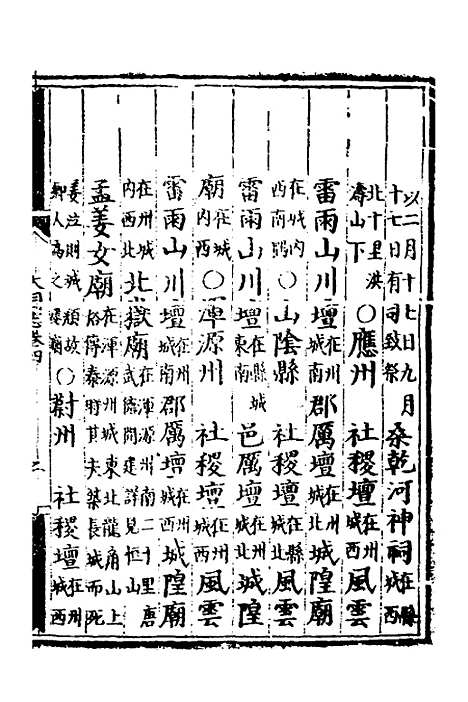 以二月十七日九月十七日有司致祭 桑乾河神祠在縣城西
北十里洪濤山下 〇應州 社稷壇在州城西 風雲
雷雨山川壇在州城南 郡厲壇在州城北 城隍廟
在城內西南隅 〇山陰縣 社稷壇在縣城西 風雲
雷雨山川壇在縣城東南 邑厲壇在城北 城隍
廟在城內西 〇渾源州 社稷壇在州城西 風雲
雷雨山川壇在州城南 郡厲壇在州城西 城隍廟
在州城內西北 北嶽廟在渾源州南二十里唐武德間建詳見恒山
孟姜女廟在渾源州城東北龍角山上俗傳秦時其夫築長城而死
姜泣則城頹故鄉人為之建廟 〇蔚州 社稷壇在州城西